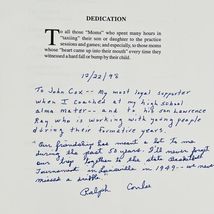 DEDICATION
To all those "Moms" who spent many hours in
"taxiing" their son or daughter to the practice
sessions and games; and especially, to those moms
whose "heart came into their mouth" every time they
witnessed a hard fall or bump by their child.
12/22/98
To John Cox - My most loyal supporter
when I coached at my high school
alma mater - and to his son Lawrence
Ray who is working with young people
during their formative years.
Our friendship has meant a lot to me
during the past 50 years. I'll never forget
our "trip" together to the state Basketball
Tournament in Louisville in 1949 - we never
missed a
Ralph